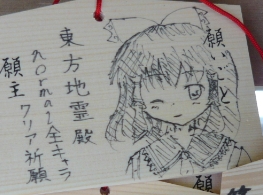 願いごと
東方地霊殿
normal全キャラ
クリア祈願
願主
願